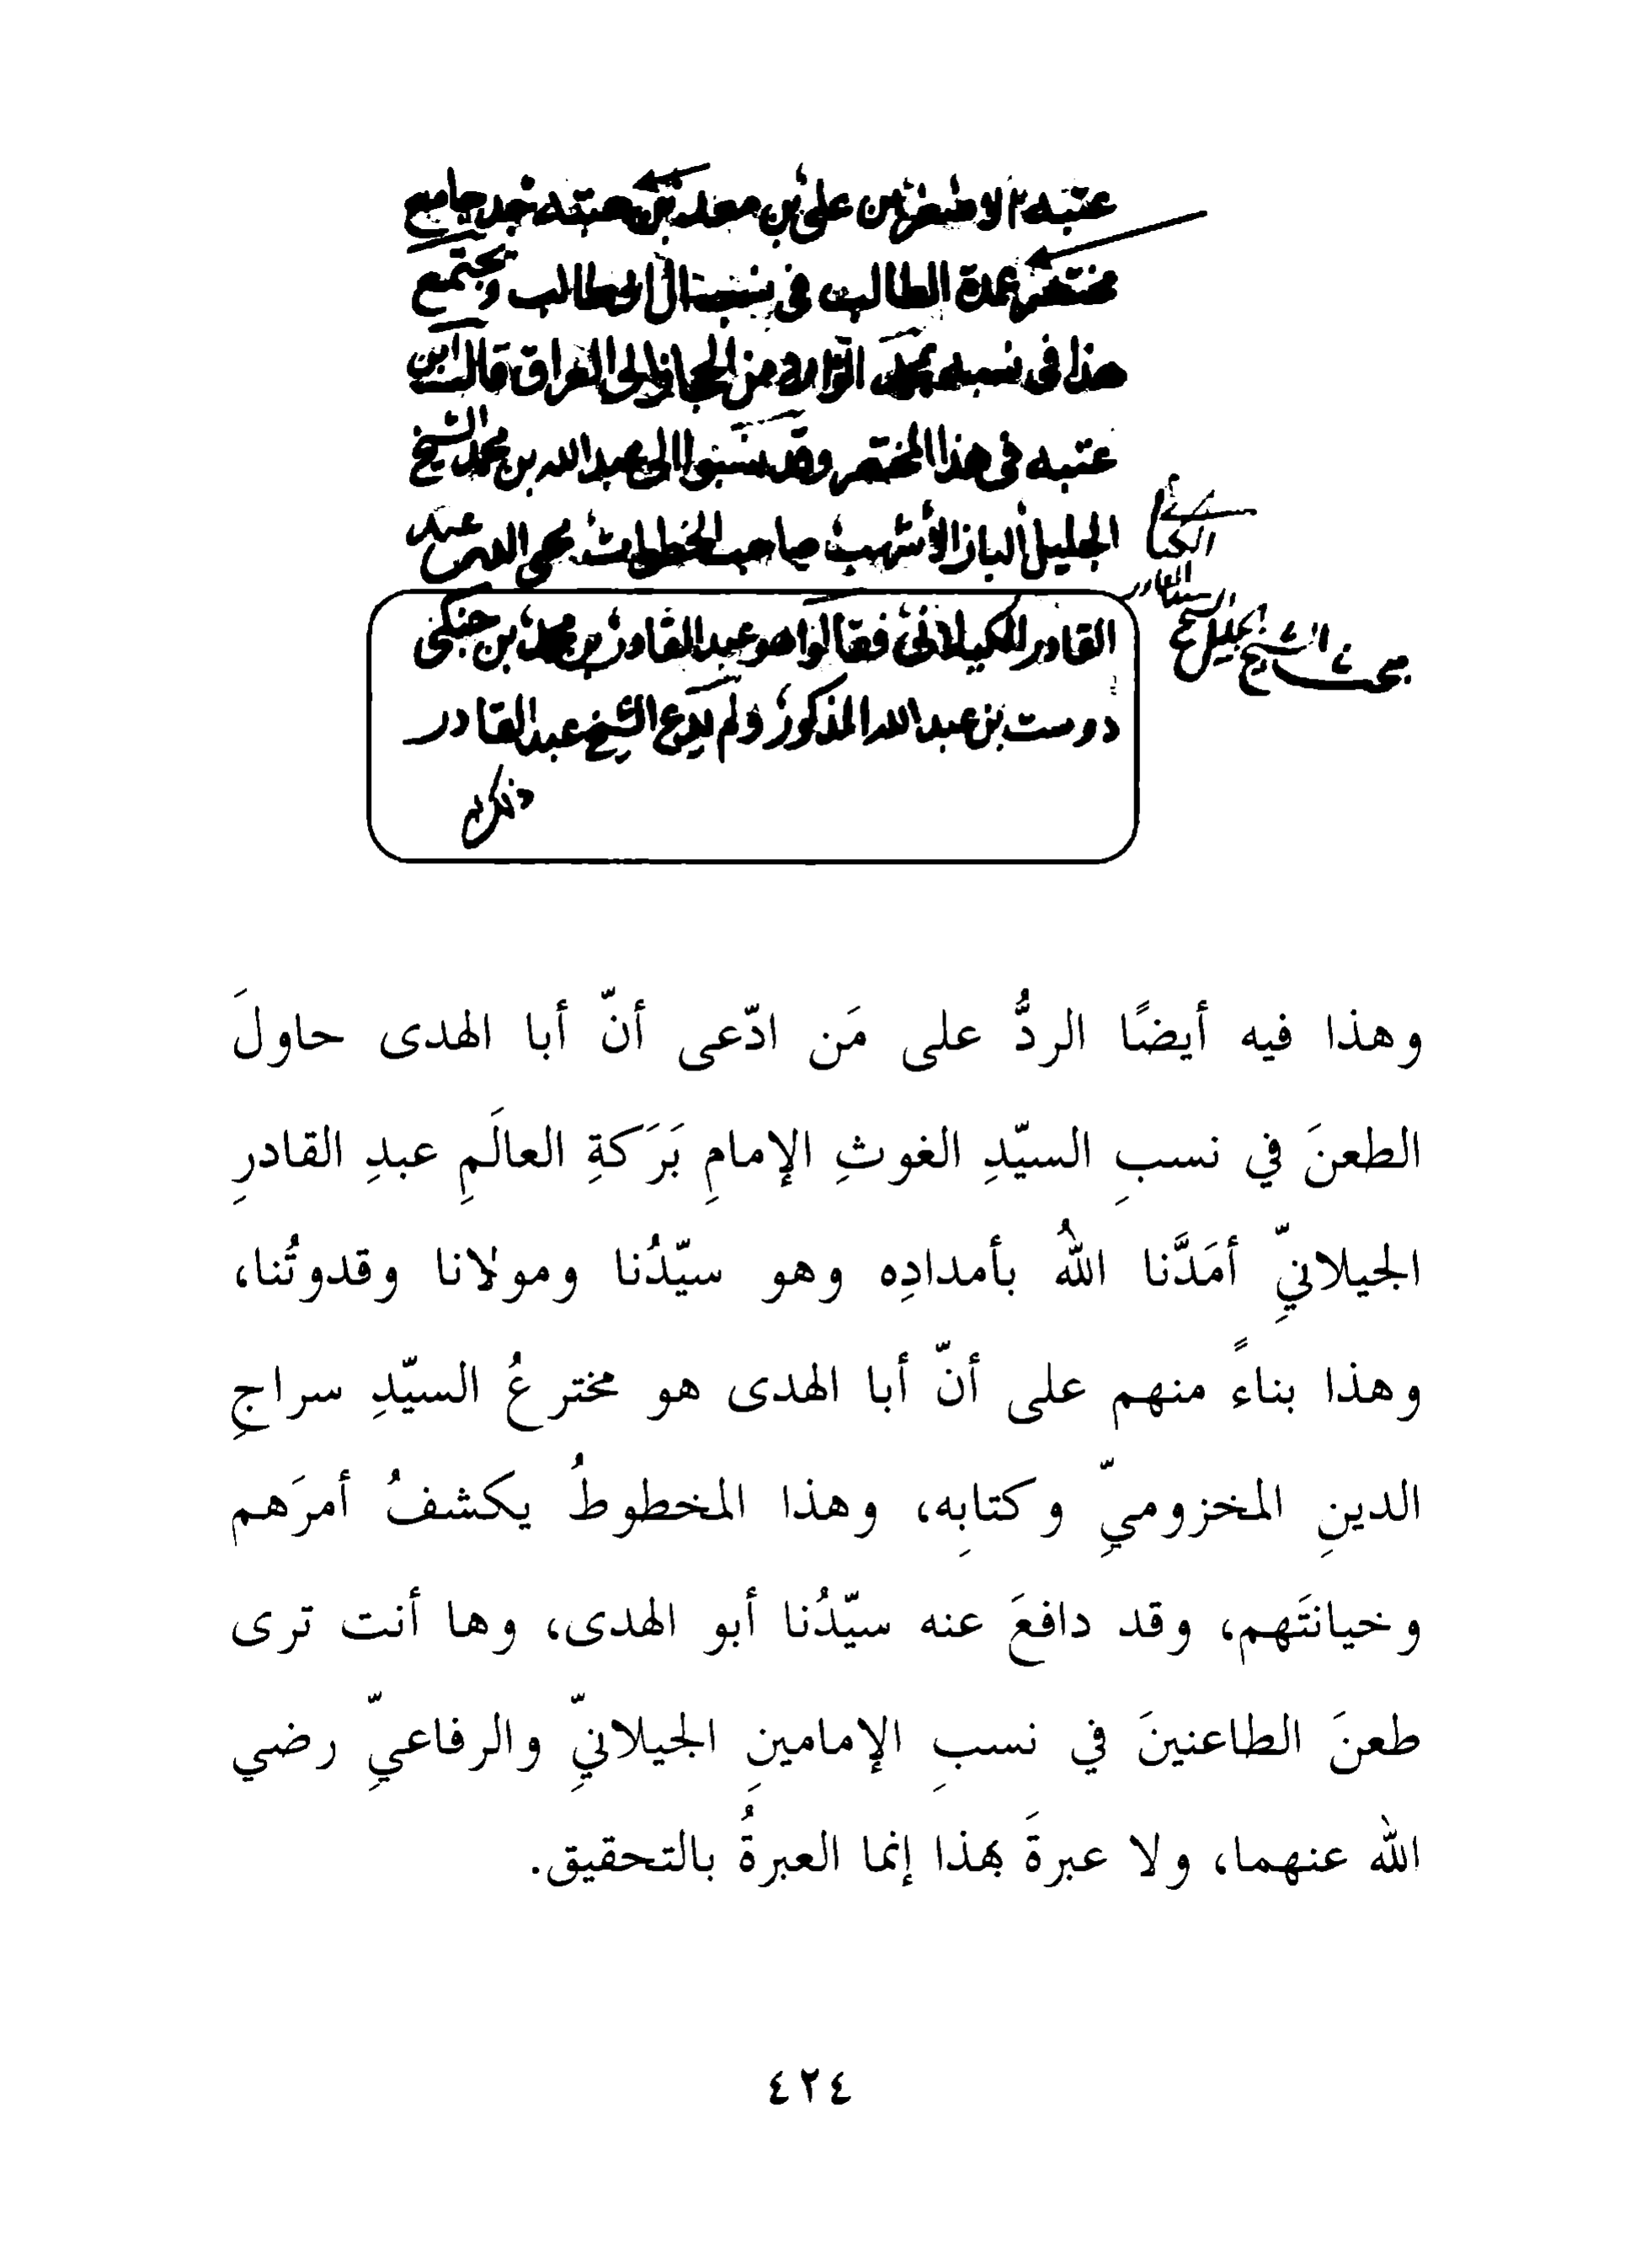 عتبه الاصغر بن علي بن معد بن عتبه جد جامع
مختصر عمدة الطالب في نسب ال ابي طالب ويجتمع
هذا في نسبه بمحمد الوارد من الحجاز الى العراق قال ابن
عتبه في هذا المختصر وقد نسبوا الى عبد الله بن محمد الشيخ
الجليل الباز الأشهب صاحب الخطوات محي الدين عبد
القادر الكيلاني فقالوا هو عبد القادر بن محمد بن جنكي
دوست بن عبد الله المذكور ولم يدع الشيخ عبد القادر
مبحث الشيخ الجليل
وهذا فيه أيضًا الردُّ على مَن ادّعى أنّ أبا الهدى حاولَ
الطعنَ في نسبِ السيّدِ الغوثِ الإمامِ بَرَكةِ العالَمِ عبدِ القادرِ
الجيلانيِّ أمَدَّنا اللهُ بأمدادِه وهو سيّدُنا ومولانا وقدوتُنا،
وهذا بناءً منهم على أنّ أبا الهدى هو مخترعُ السيّدِ سراجِ
الدينِ المخزوميِّ وكتابِه، وهذا المخطوطُ يكشفُ أمرَهم
وخيانتَهم، وقد دافعَ عنه سيّدُنا أبو الهدى، وها أنت ترى
طعنَ الطاعنينَ في نسبِ الإمامينِ الجيلانيِّ والرفاعيِّ رضي
الله عنهما، ولا عبرةَ بهذا إنما العبرةُ بالتحقيق.
٤٢٤